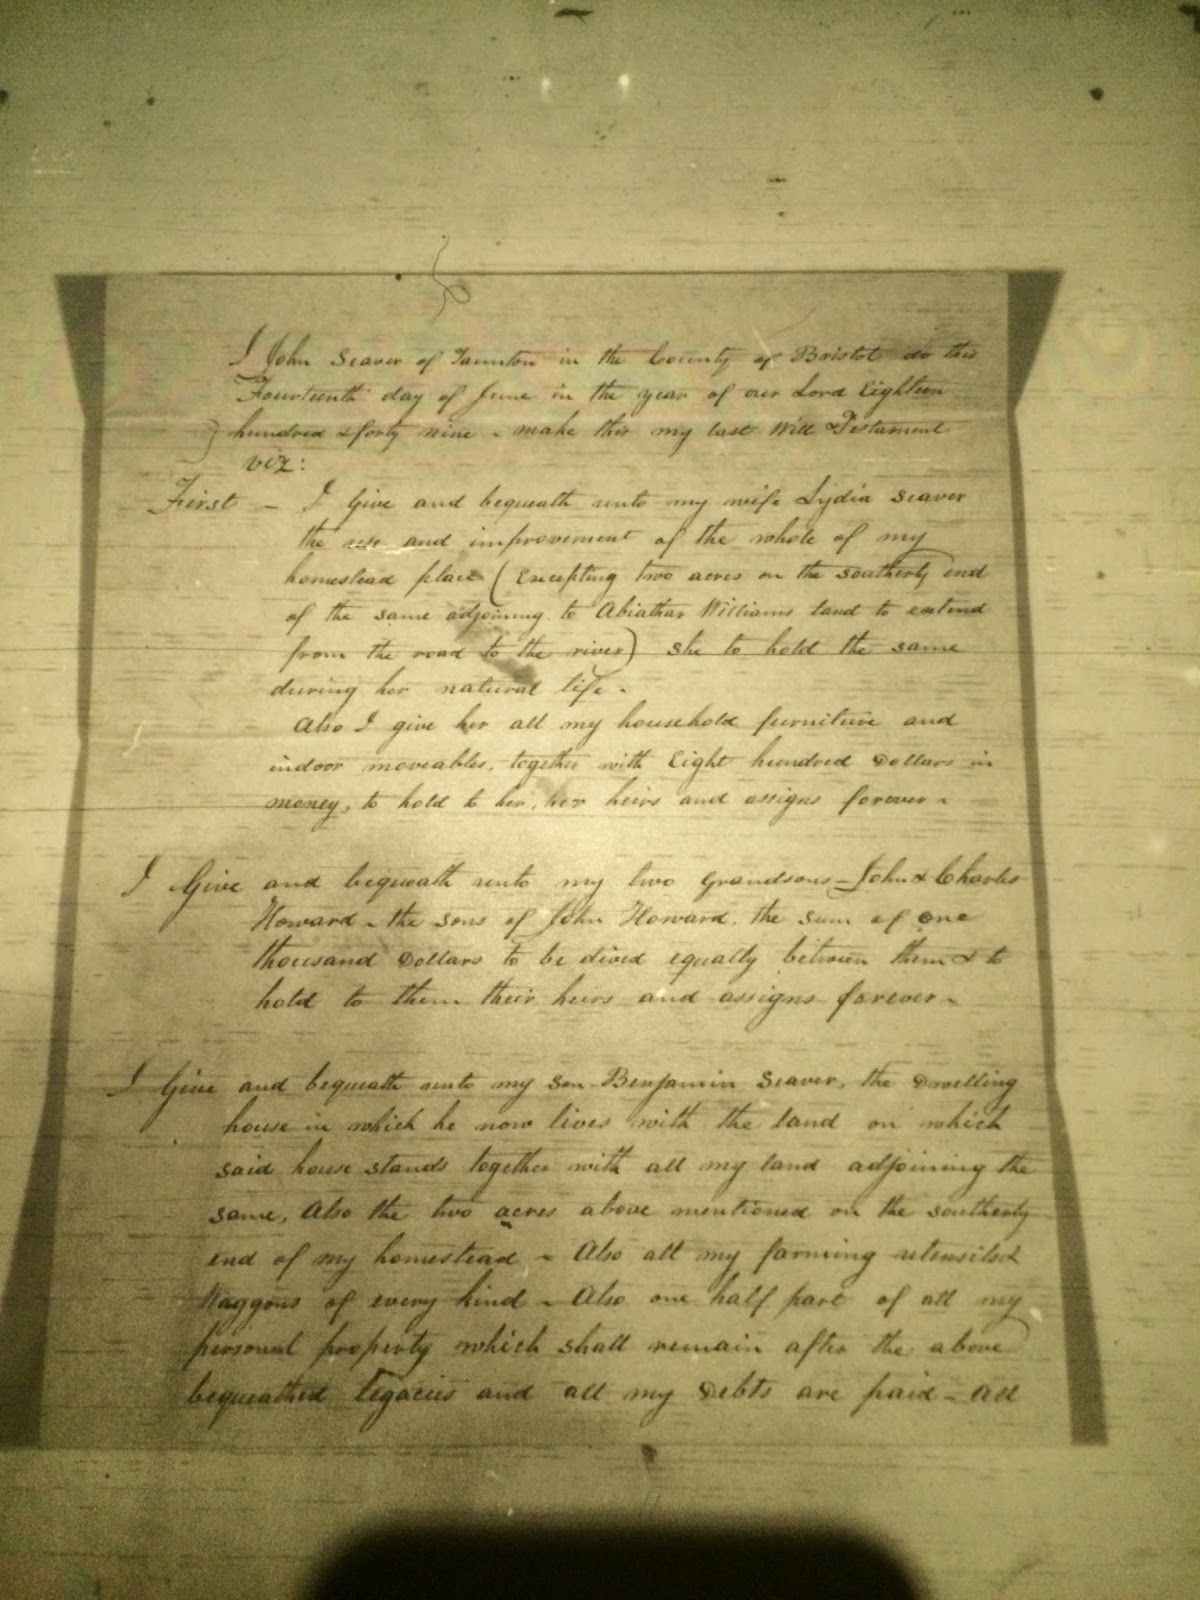 I John Seaver of Taunton in the County of Bristol do this
Fourteenth day of June in the year of our Lord Eighteen
hundred & forty nine - make this my last Will & Testament
viz:
First - I Give and bequeath unto my wife Lydia Seaver
the use and improvement of the whole of my
homestead place (Excepting two acres on the southerly end
of the same adjoining to Abiathar Williams land to extend
from the road to the river) she to hold the same
during her natural life -
Also I give her all my household furniture and
indoor moveables, together with Eight hundred Dollars in
money, to hold to her, her heirs and assigns forever -
I Give and bequeath unto my two Grandsons - John & Charles
Howard - the sons of John Howard, the sum of one
thousand Dollars to be dived equally between them & to
hold to them their heirs and assigns forever -
I Give and bequeath unto my son Benjamin Seaver, the Dwelling
house in which he now lives with the land on which
said house stands together with all my land adjoining the
same, Also the two acres above mentioned on the southerly
end of my homestead - Also all my farming utensils &
Waggons of every kind - Also one half part of all my
personal property which shall remain after the above
bequeathed legacies and all my Debts are paid - All